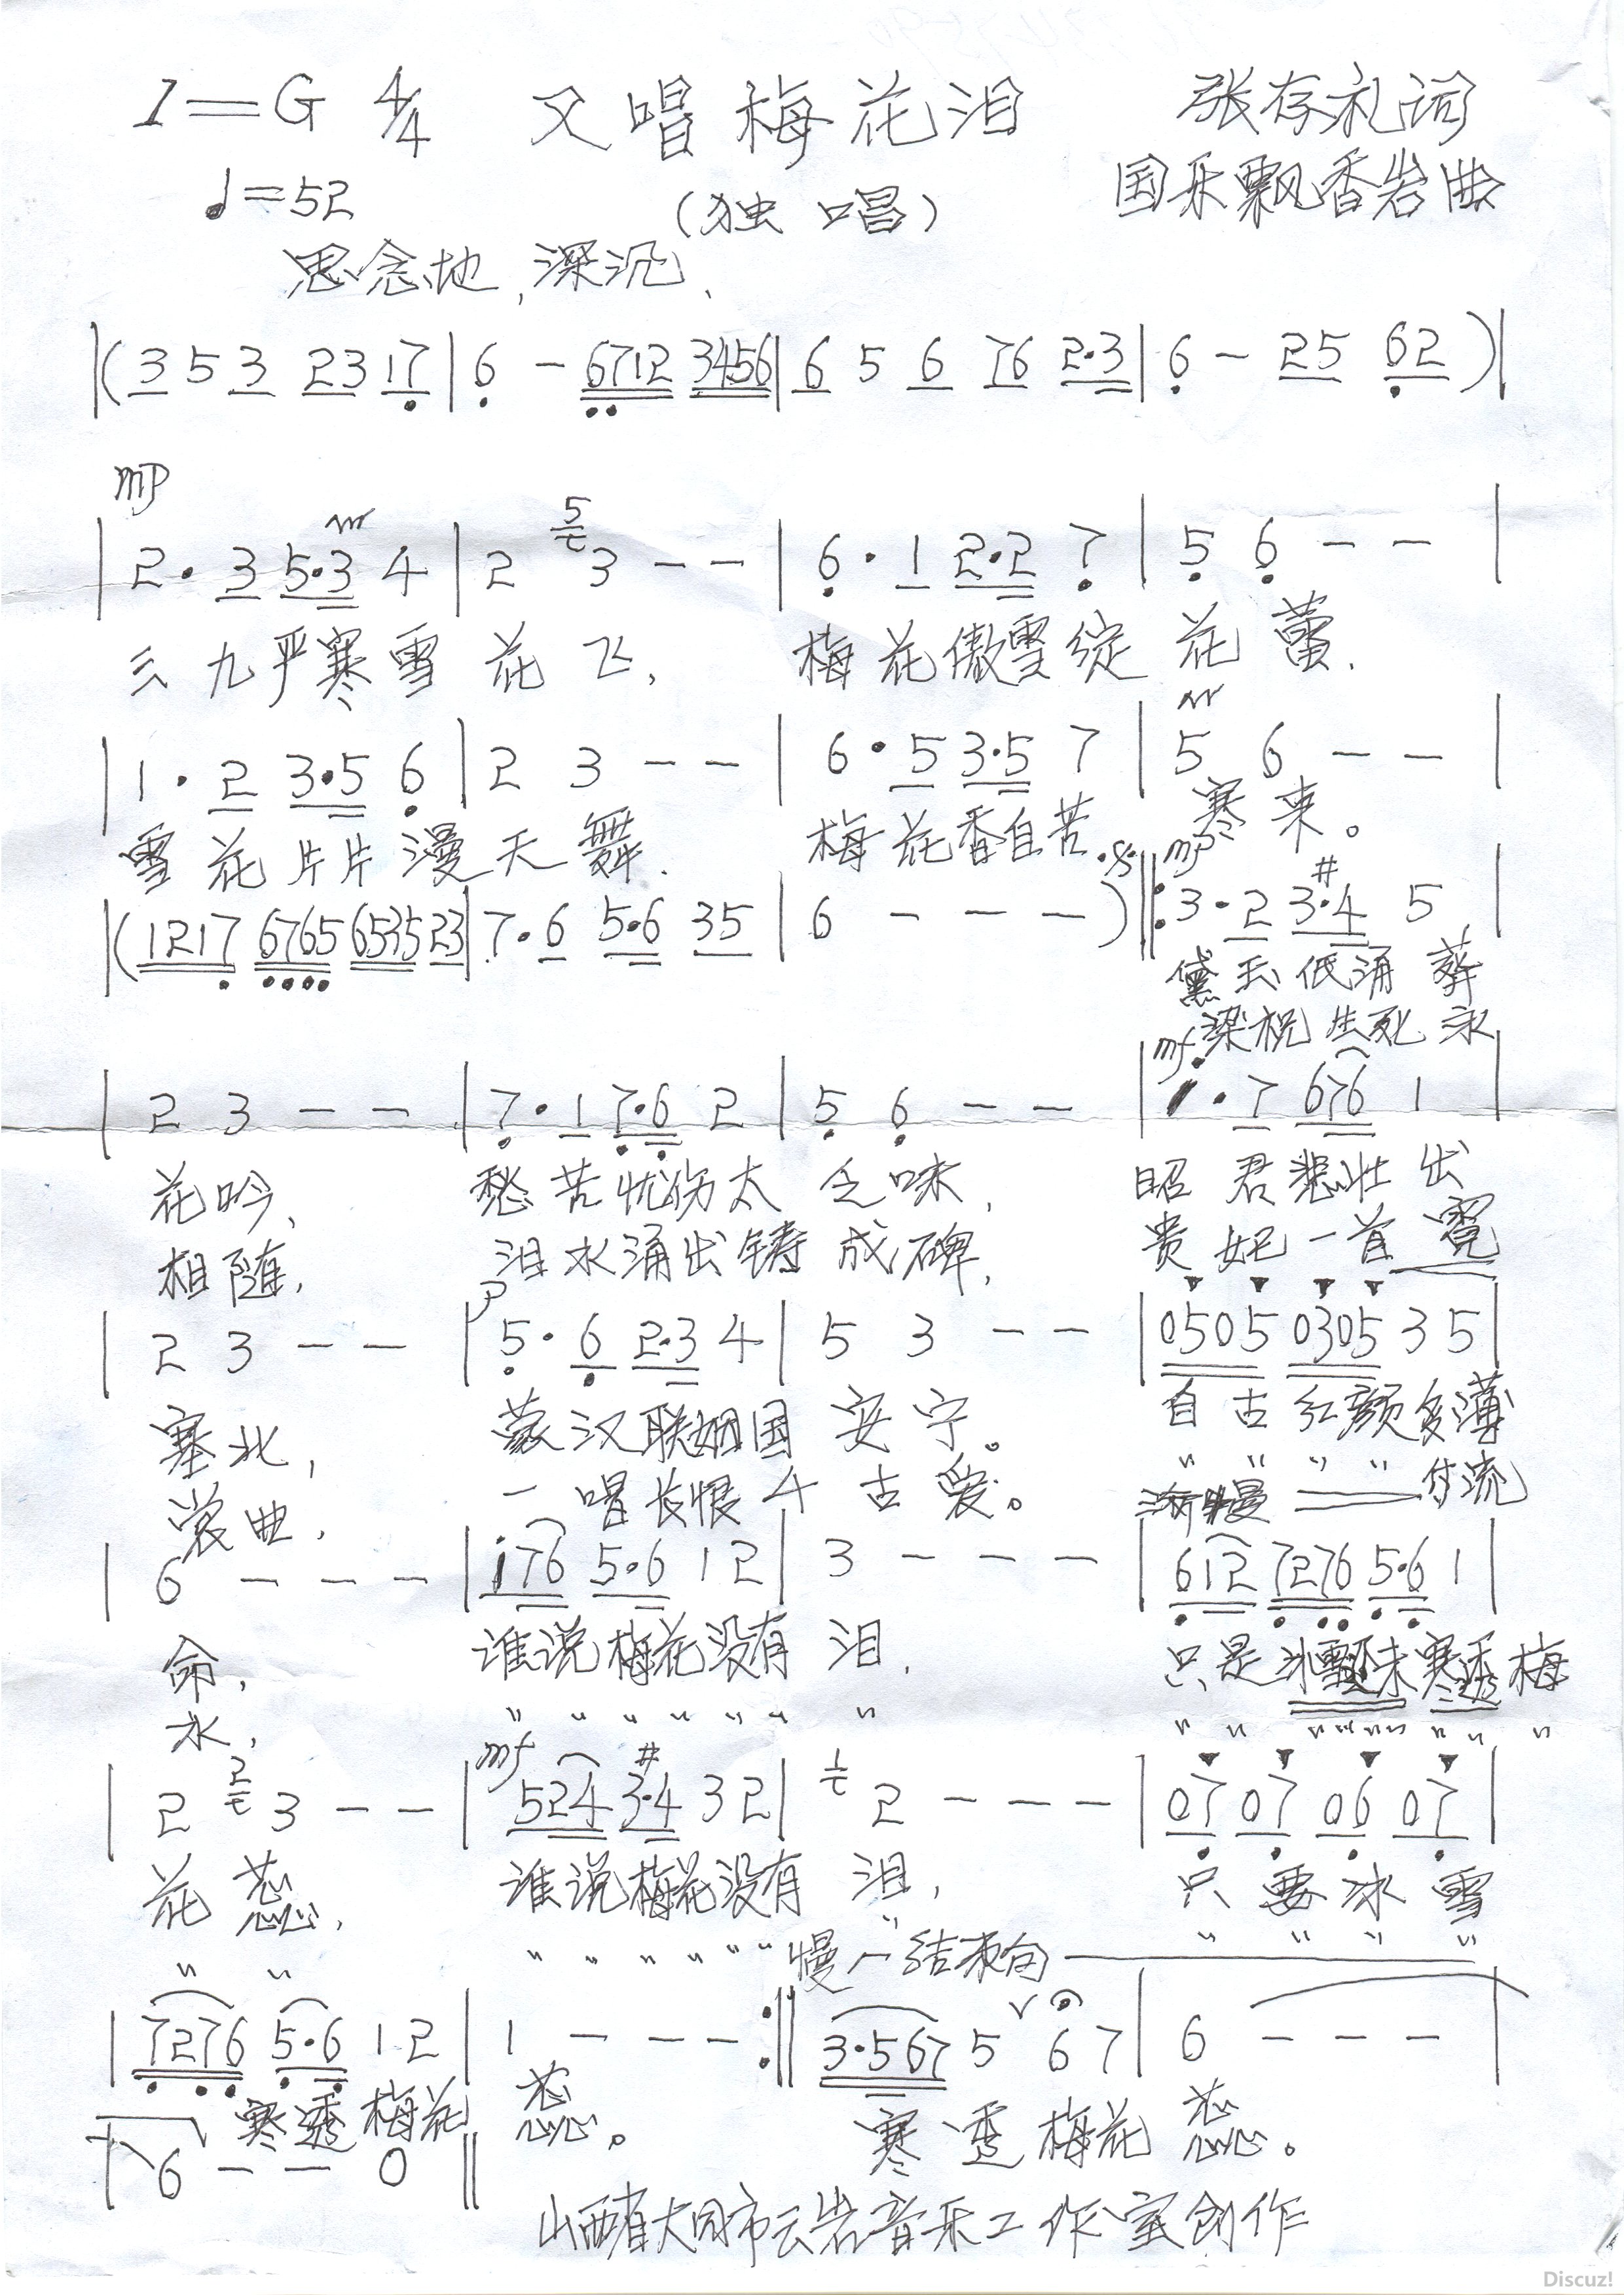 1=G 4/4 又唱梅花泪 张存礼词
♩=52 (独唱) 国乐飘香岩曲
思念地,深沉、
|(3 5 3 23 17 | 6 - 6712 3456 | 6 5 6 76 2·3 | 6 - 25 62 )|
mp
5
| 2· 3 5·3 4 | 2 3 - - | 6· 1 2·2 7 | 5 6 - - |
三九严寒雪花飞, 梅花傲雪绽花蕾.
| 1· 2 3·5 6 | 2 3 - - | 6· 5 3·5 7 | 5 6 - - |
雪花片片漫天舞. 梅花香自苦寒来。
mp
|(1217 6765 6535 23 | 7·6 5·6 35 | 6 - - - )‖: 3·2 3·#4 5 |
黛玉低诵葬
梁祝生死永
mf
| 2 3 - - | 7·1 7·6 2 | 5 6 - - | 1·7 676 1 |
花吟, 愁苦忧伤太乏味, 昭君悲壮出
相随, 泪水涌出铸成碑, 贵妃一首霓
p
| 2 3 - - | 5·6 2·3 4 | 5 3 - - | 0505 0305 3 5 |
塞北, 蒙汉联姻国安宁。 自古红颜多薄
裳曲, 一唱长恨千古爱。 " " " " 付流
渐慢
| 6 - - - | 176 5·6 1 2 | 3 - - - | 612 7276 5·6 1 |
命, 谁说梅花没有泪, 只是冰雪未寒透梅
水, " " " " " " " " " " " " " " "
mf
2 1
| 2 3 - - | 524 3·#4 3 2 | 2 - - - | 07 07 06 07 |
花蕊, 谁说梅花没有泪, 只要冰雪
" " " " " " " " " " " " "
慢 结束句
| 7276 5·6 1 2 | 1 - - - :‖ 3·567 5 6 7 | 6 - - - |
寒透梅花蕊。 寒透梅花蕊。
| 6 - - 0 ‖
山西省大同市云岩音乐工作室创作
Discuz!